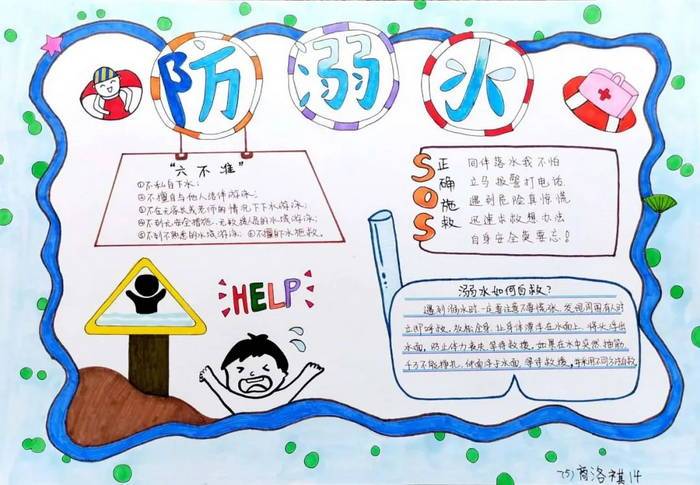 防溺水
“六不准”
①不私自下水；
②不擅自与他人结伴游泳；
③不在无家长或老师的情况下下水游泳；
④不到无安全措施、无救援人员的水域游泳；
⑤不到不熟悉的水域游泳；⑥不擅自下水施救。
SOS
正确施救
同伴落水我不怕
立马报警打电话
遇到危险莫慌
迅速求救想办法
自身安全莫要忘！
HELP
溺水如何自救？
遇到溺水时一定要注意不要慌张，发现周围有人时
立即呼救，放松全身，让身体漂浮在水面上，将头浮出
水面，防止体力丧失，等待救援，如果在水中突然抽筋
千万不能挣扎，使面浮于水面，等待救援，
7(5)商洛祺14